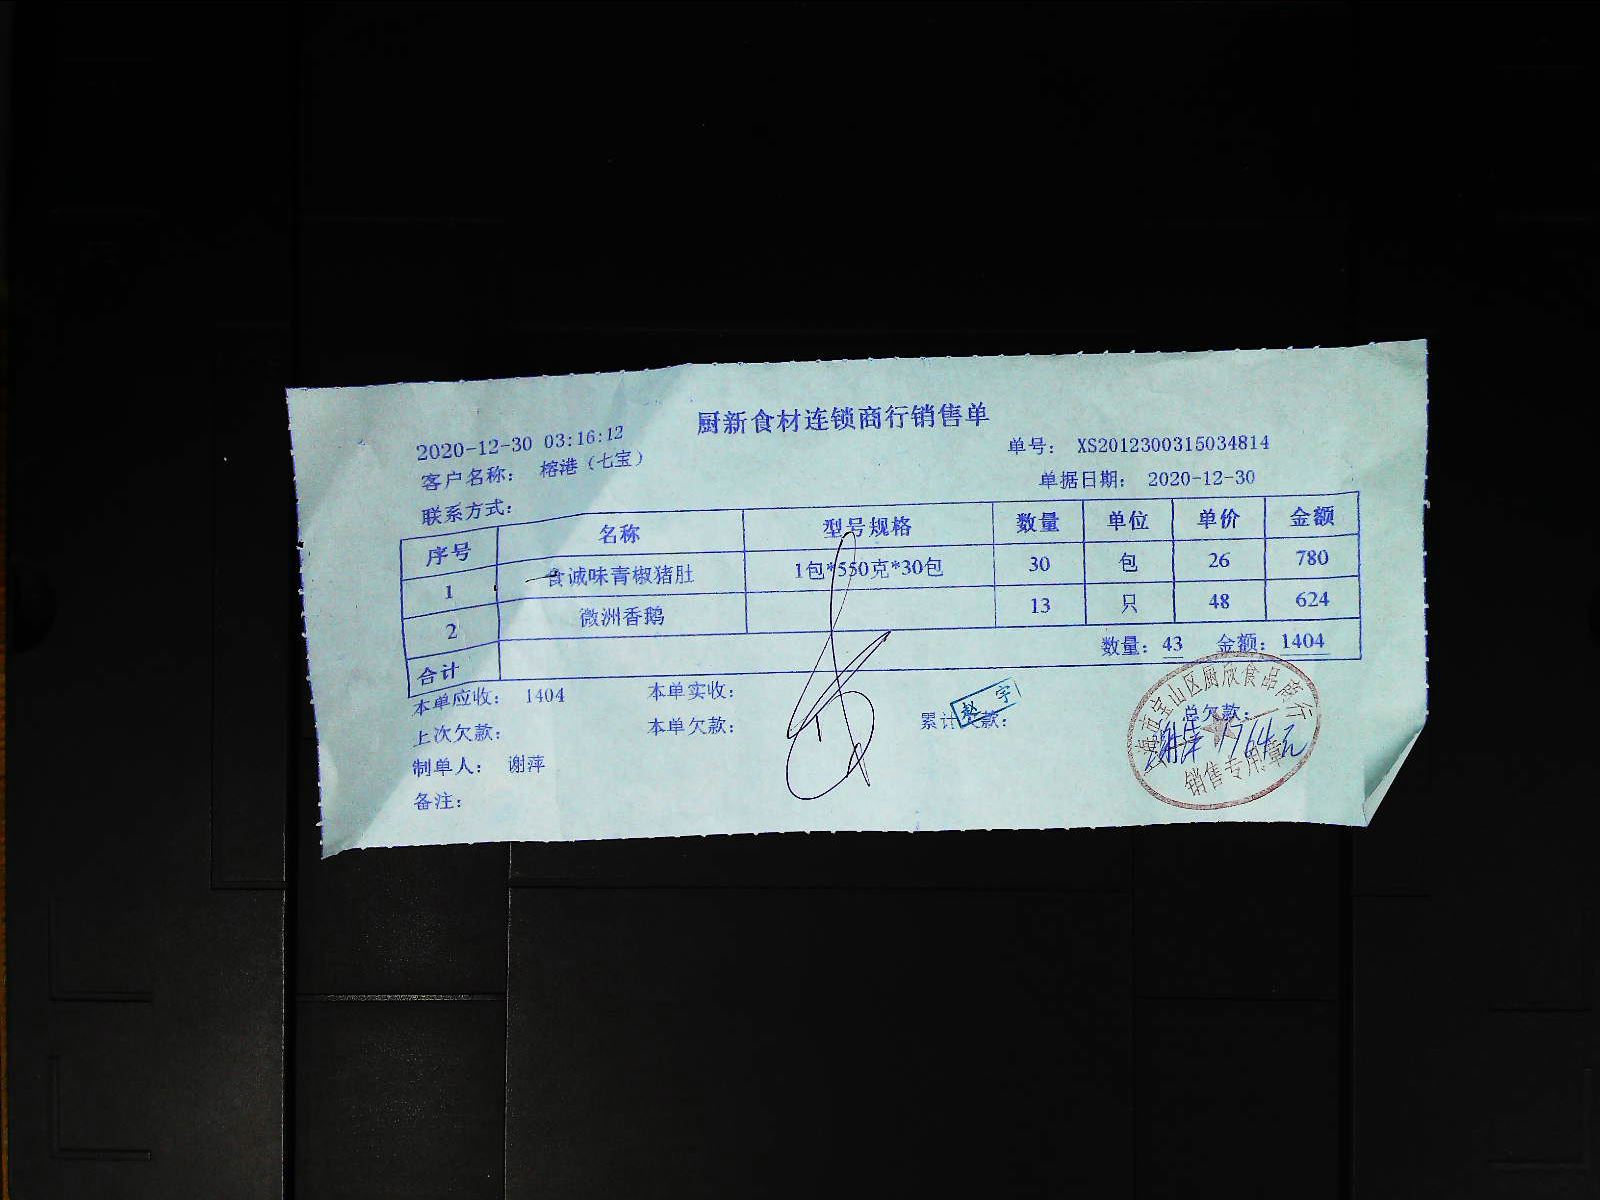 厨新食材连锁商行销售单
2020-12-30 03:16:12
单号： XS2012300315034814
客户名称： 榕港（七宝）
单据日期： 2020-12-30
联系方式：
序号 名称 型号规格 数量 单位 单价 金额
1 食诚味青椒猪肚 1包*550克*30包 30 包 26 780
2 微洲香鹅 13 只 48 624
合计 数量：43 金额：1404
本单应收： 1404 本单实收：
上次欠款： 本单欠款： 累计欠款： 总欠款：
赵宇
制单人： 谢萍
备注：
海市宝山区厨欣食品商行
销售专用章